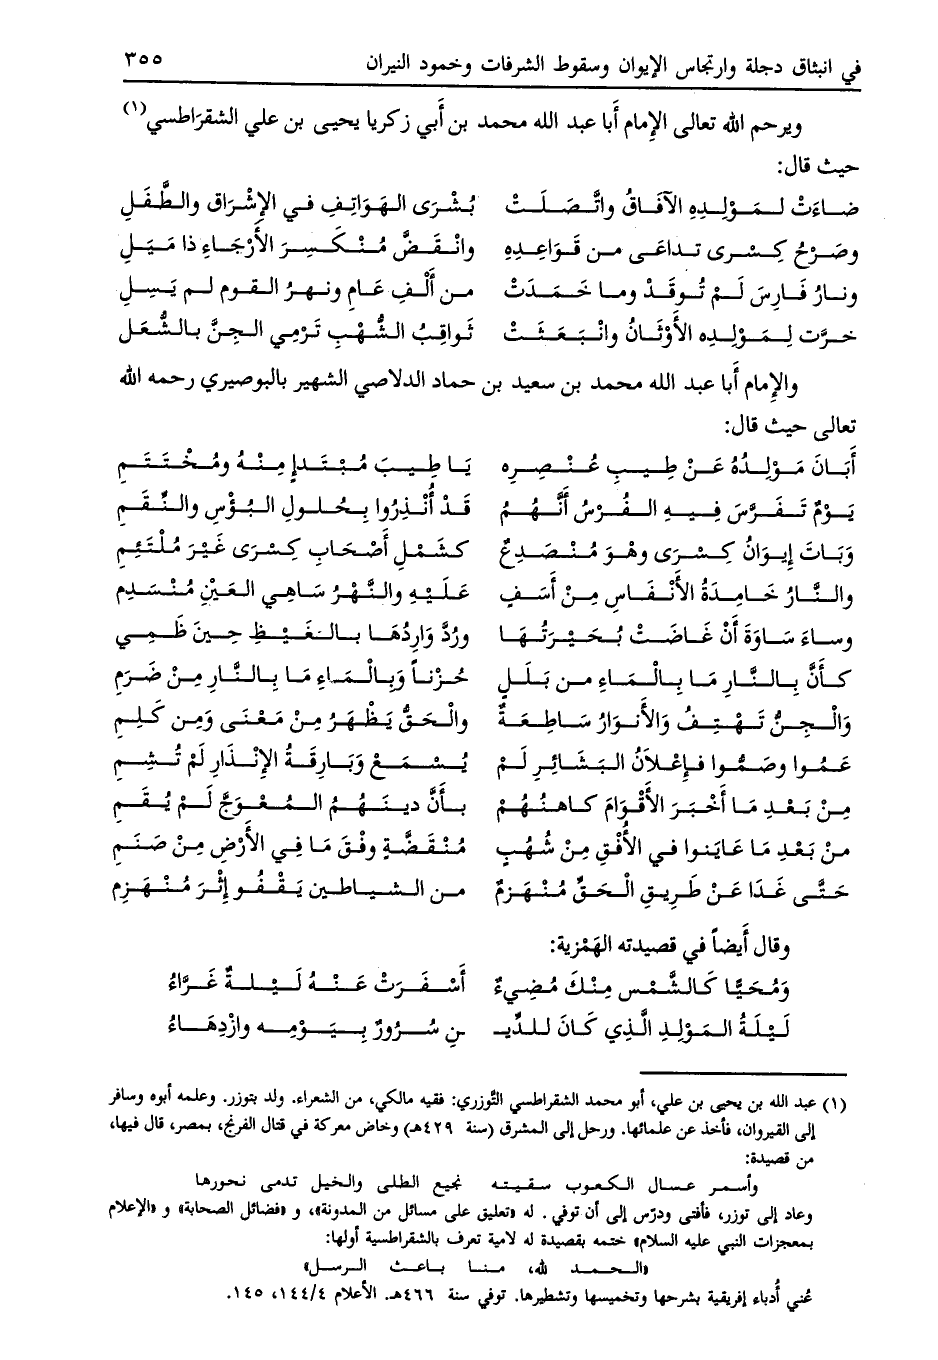 في انبثاق دجلة وارتجاس الإيوان وسقوط الشرفات وخمود النيران ٣٥٥
ويرحم الله تعالى الإمام أبا عبد الله محمد بن أبي زكريا يحيى بن علي الشقراطسي(١)
حيث قال:
ضاءَتْ لمَوْلِدِهِ الآفاقُ واتَّصَلَتْ بُشْرَى الهَوَاتِفِ في الإشْراقِ والطَّفَلِ
وصَرْحُ كِسْرى تداعَى من قَوَاعِدِهِ وانْقَضَّ مُنْكَسِرَ الأَرْجَاءِ ذا مَيَلِ
ونارُ فَارِسَ لَمْ تُوقَدْ وما خَمَدَتْ من أَلْفِ عَامٍ ونهرُ القومِ لم يَسِلِ
خرَّت لِمَوْلِدِه الأَوْثَانُ وانْبَعَثَتْ ثَواقِبُ الشُّهْبِ تَرْمِي الجِنَّ بالشُّعَلِ
والإمام أبا عبد الله محمد بن سعيد بن حماد الدلاصي الشهير بالبوصيري رحمه الله
تعالى حيث قال:
أَبَانَ مَوْلِدُهُ عَنْ طِيبِ عُنْصِرِهِ يَا طِيبَ مُبْتَدإٍ مِنْهُ ومُخْتَتَمِ
يَوْمٌ تَفَرَّسَ فِيهِ الفُرْسُ أَنَّهُمُ قَدْ أُنْذِرُوا بِحُلُولِ البُؤْسِ والنِّقَمِ
وَبَاتَ إيوَانُ كِسْرَى وهْوَ مُنْصَدِعٌ كشَمْلِ أَصْحَابِ كِسْرَى غَيْرَ مُلْتَئِمِ
والنَّارُ خَامِدَةُ الأَنْفَاسِ مِنْ أَسَفٍ عَلَيْهِ والنَّهْرُ سَاهِي العَيْنِ مُنْسَدِمِ
وساءَ سَاوَةَ أَنْ غَاضَتْ بُحَيْرَتُهَا ورُدَّ وَارِدُهَا بالغَيْظِ حِينَ ظَمِي
كأَنَّ بالنَّارِ مَا بِالْمَاءِ من بَلَلٍ حُزْناً وَبِالْمَاءِ مَا بِالنَّارِ مِنْ ضَرَمِ
وَالْجِنُّ تَهْتِفُ وَالأَنوَارُ سَاطِعَةٌ والْحَقُّ يَظْهَرُ مِنْ مَعْنَى وَمِن كَلِمِ
عَمُوا وصَمُّوا فإعْلاَنُ البَشَائِرِ لَمْ يُسْمَعْ وَبَارِقَةُ الإنْذَارِ لَمْ تُشِمِ
مِنْ بَعْدِ مَا أَخْبَرَ الأَقْوَامَ كاهنُهُمْ بأَنَّ دينَهُمُ المُعْوَجَّ لَمْ يُقَمِ
مِنْ بَعْدِ مَا عَايَنوا في الأُفْقِ مِنْ شُهُبٍ مُنْقَضَّةٍ وِفْقَ مَا فِي الأَرْضِ مِنْ صَنَمِ
حَتَّى غَدَا عَنْ طَرِيقِ الْحَقِّ مُنْهَزِمٌ من الشياطين يَقْفُو إثْرَ مُنْهَزِمِ
وقال أَيضاً في قصيدته الهَمْزية:
وَمُحَيَّا كَالشَّمْسِ مِنْكَ مُضِيءٌ أَسْفَرَتْ عَنْهُ لَيْلةٌ غَرَّاءُ
لَيْلَةُ المَوْلِدِ الَّذِي كَانَ للدِّيـ ـنِ سُرُورٌ بِيَوْمِهِ وازْدِهَاءُ
(١) عبد الله بن يحيى بن علي، أبو محمد الشقراطسي التَّوزري: فقيه مالكي، من الشعراء. ولد بتوزر. وعلمه أبوه وسافر
إلى القيروان، فأخذ عن علمائها. ورحل إلى المشرق (سنة ٤٢٩هـ) وخاض معركة في قتال الفرنج، بمصر، قال فيها،
من قصيدة:
وأسمر عسال الكعوب سقيته نجيع الطلى والخيل تدمى نحورها
وعاد إلى توزر، فأفتى ودرّس إلى أن توفي. له «تعليق على مسائل من المدونة»، و «فضائل الصحابة» و «الإعلام
بمعجزات النبي عليه السلام» ختمه بقصيدة له لامية تعرف بالشقراطسية أولها:
«الحمد لله، منا باعث الرسل»
عُني أُدباء إفريقية بشرحها وتخميسها وتشطيرها. توفي سنة ٤٦٦هـ. الأعلام ١٤٤/٤، ١٤٥.